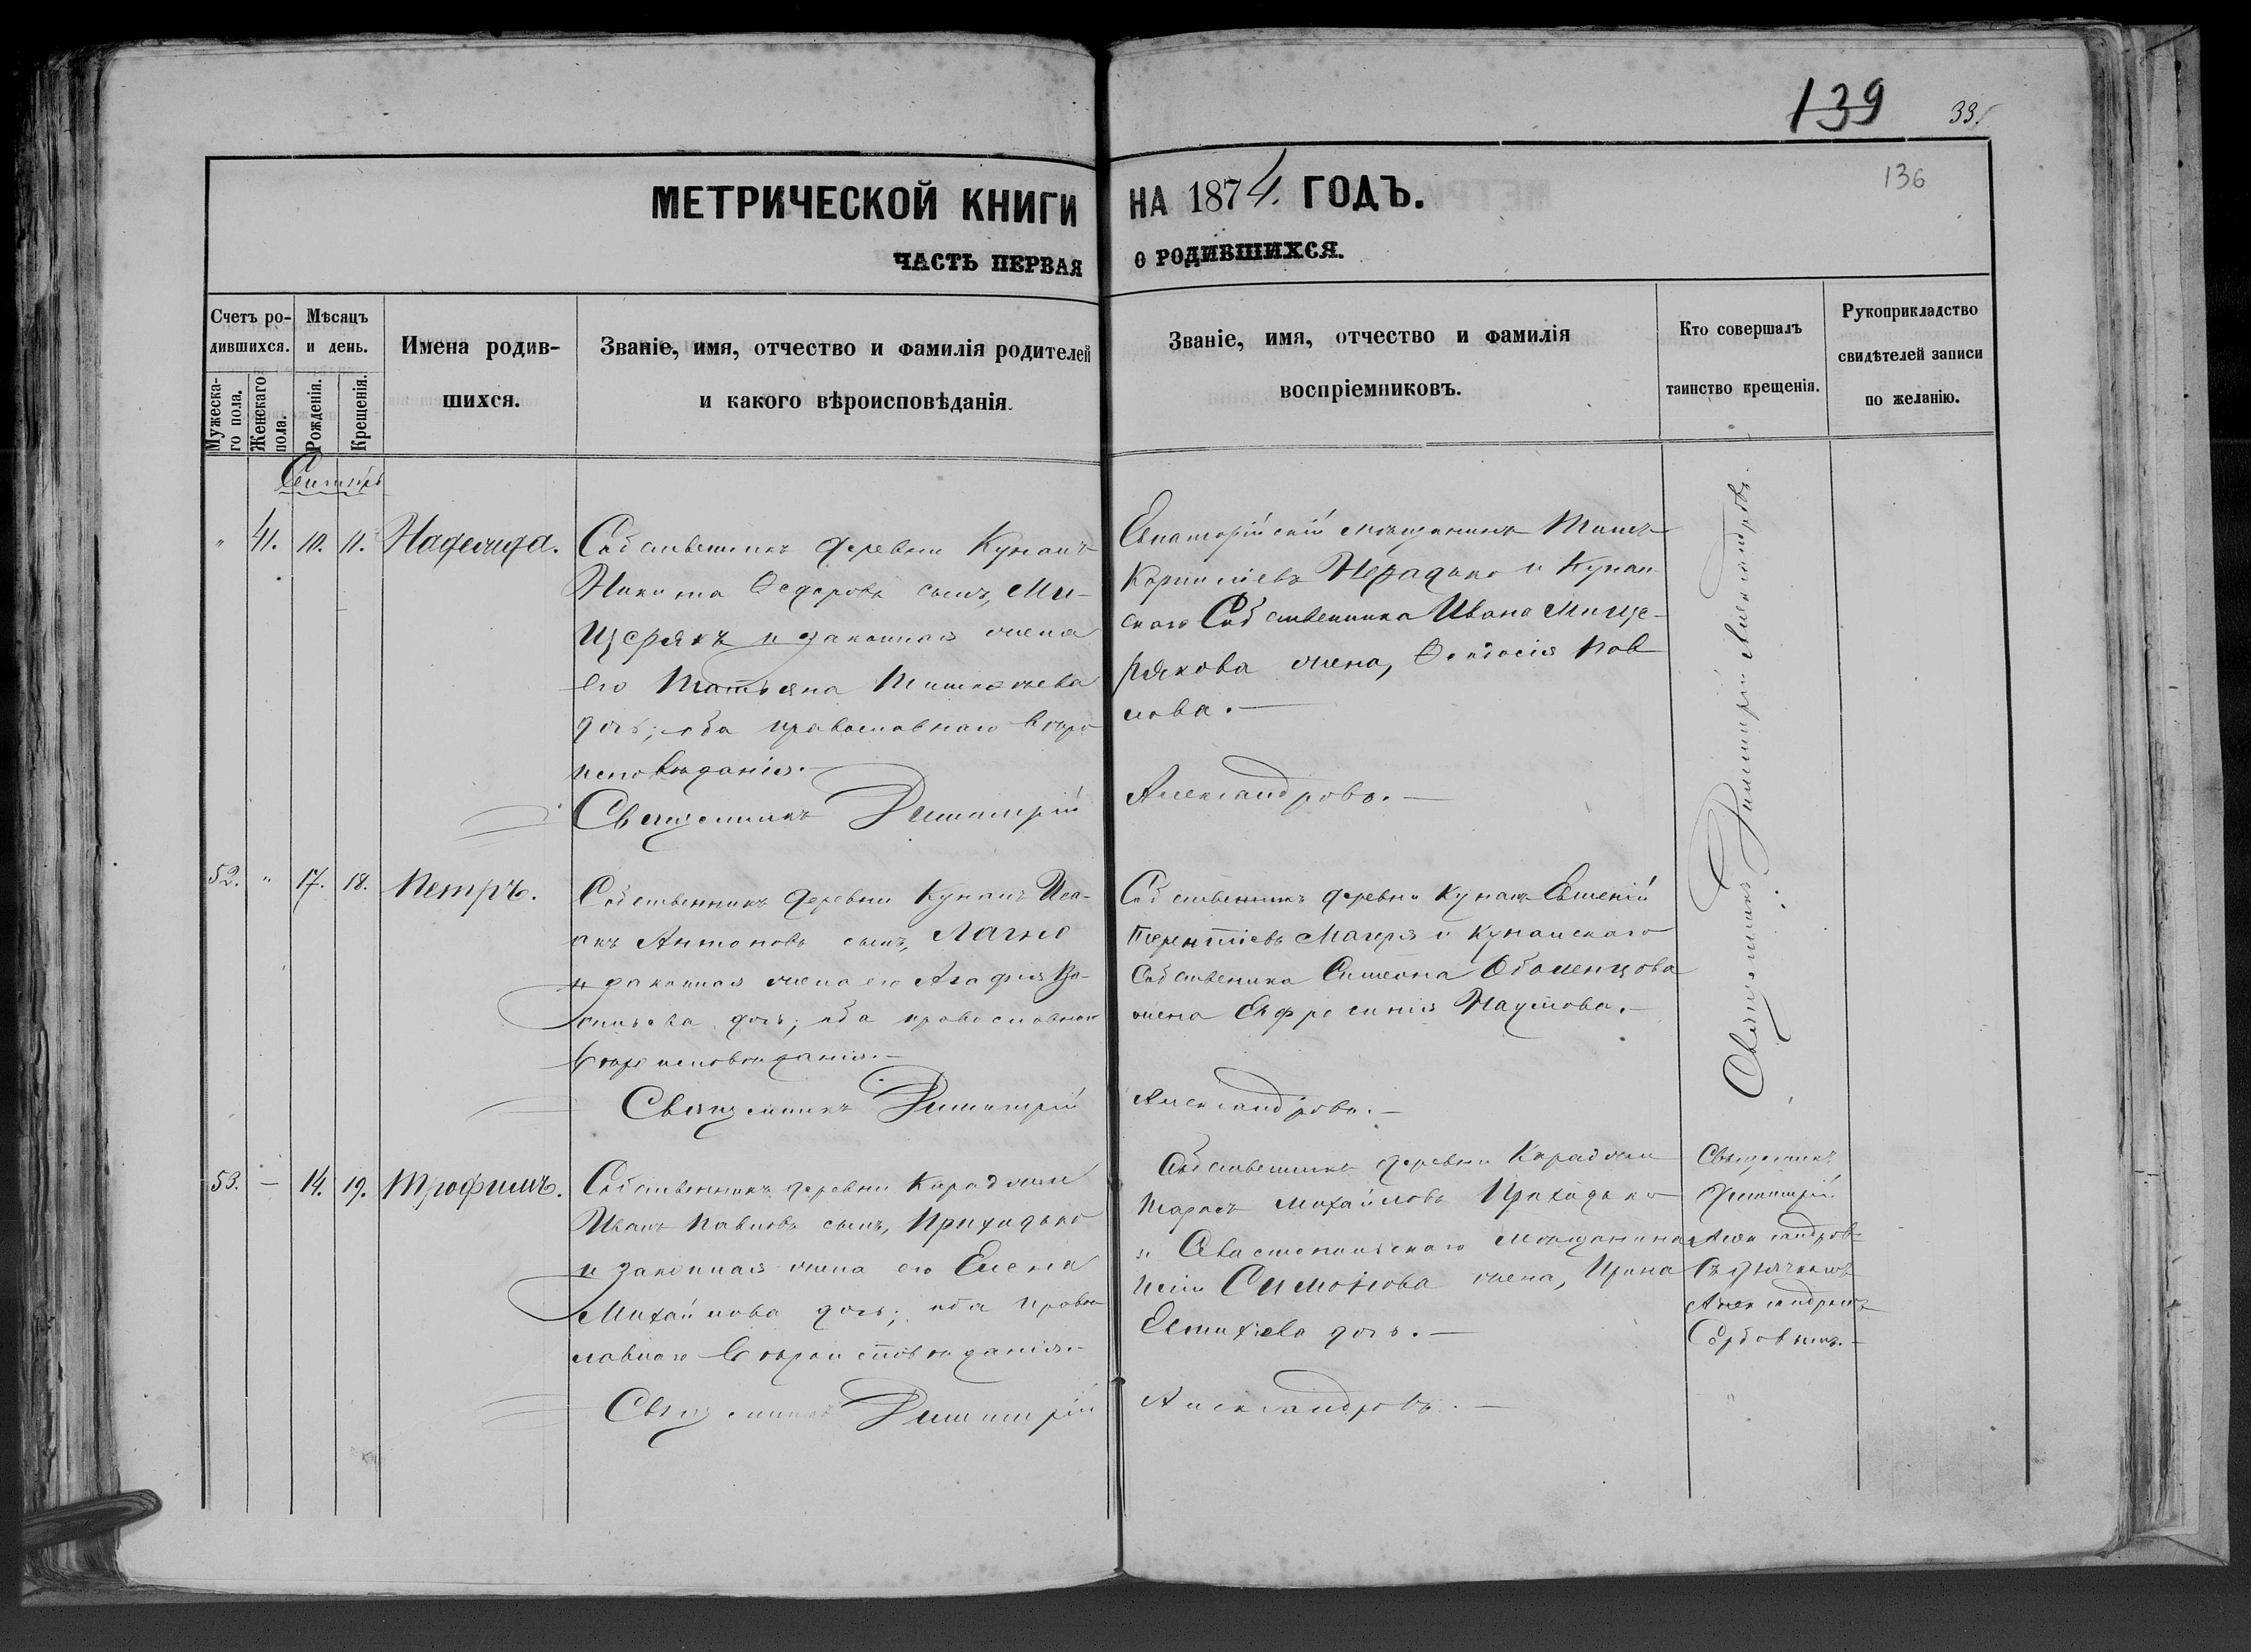 139 33.
136
МЕТРИЧЕСКОЙ КНИГИ НА 1874. ГОДЪ.
ЧАСТЬ ПЕРВАЯ О РОДИВШИХСЯ.
Счетъ ро-
дившихся.
Мужеска-
го пола.
Женскаго
пола.
Мѣсяцъ
и день.
Рожденія.
Крещенія.
Имена родив-
шихся.
Званіе, имя, отчество и фамилія родителей
и какого вѣроисповѣданія.
Званіе, имя, отчество и фамилія
воспріемниковъ.
Кто совершалъ
таинство крещенія.
Рукоприкладство
свидѣтелей записи
по желанію.
Сентябрь
" 41. 10. 11. Надежда.
Собственникъ деревни Кунанъ
Никита Ѳедоровъ сынъ, Ми-
щерякъ и законная жена
его Татьяна
дочь; оба православнаго вѣро
исповѣданія.
Священникъ Димитрій Александровъ.
Евпаторійскій мѣщанинъ
Корнилiевъ и Кунан
скаго Собственника Ивана Мище-
рякова жена, Ѳеодосія Пав
лова.
52. " 17. 18. Петръ.
Собственникъ деревни Кунанъ Иса-
акъ Антоновъ сынъ, Лагно
и законная жена его Агафія
дочь; оба православнаго
вѣроисповѣданія.
Священникъ Димитрій Александровъ.
Собственникъ деревни Кунанъ Евгеній
Терентіевъ и Кунанскаго
Собственника Симеона Оболенцова
жена Евфросинія Наумова.
Священникъ Димитрій Александровъ.
53. — 14. 19. Трофимъ.
Собственникъ деревни Караджи
Иванъ Павловъ сынъ, Приходько
и законная жена его Елена
Михайлова дочь; оба право
славнаго вѣроисповѣданія.
Священникъ Димитрій Александровъ.
Собственникъ деревни Караджи
Тарасъ Михайловъ Приходько
и Севастопольскаго мѣщанина
Симонова жена, Ирина
Евтихіева дочь.
Священникъ
Димитрій
Александровъ
съ дьячкомъ
Александромъ